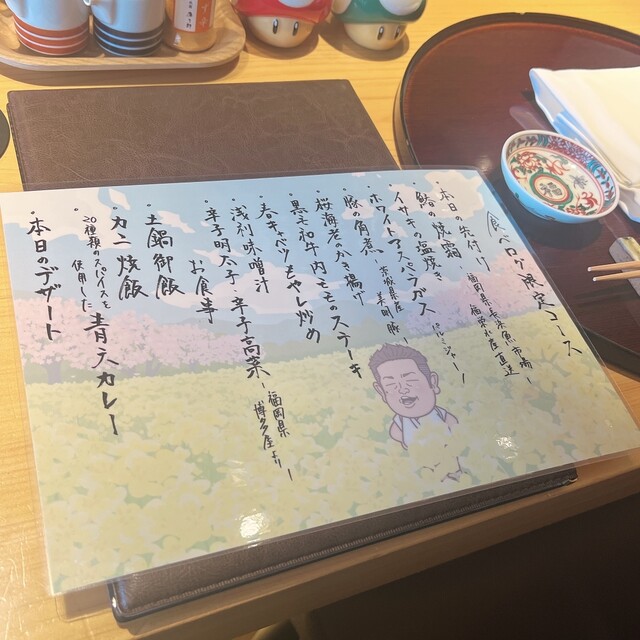 食べログ限定コース
・本日の先付け
ー福岡県長浜魚市場・福栄水産直送ー
・鰆の焼霜
・イサキの塩焼き
・ホワイトアスパラガス
・豚の角煮
ー茨城県産美明豚ー
・桜海老のかき揚げ
・黒毛和牛内もものステーキ
・春キャベツともやし炒め
お食事
浅利味噌汁
辛子明太子・辛子高菜
ー福岡県博多屋よりー
土鍋御飯
カニ焼飯
20種類のスパイスを使用した
青天カレー
・本日のデザート
福